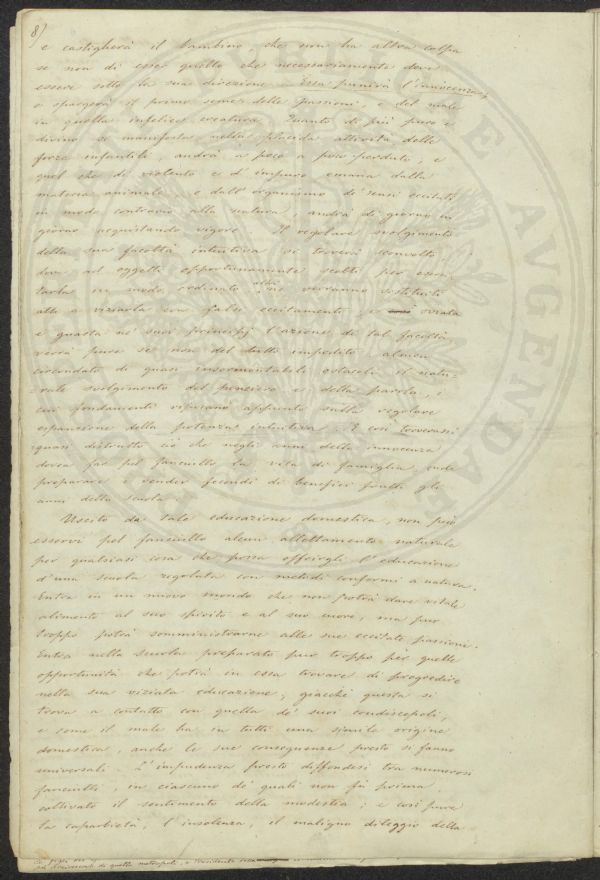 8)
e castigherà il bambino, che non ha altra colpa
se non di esser quello che necessariamente deve
essere sotto la sua direzione. Essa punirà l'innocenza,
e spargerà il primo seme delle passioni, e del male
in quella infelice creatura. Quanto di più puro e
divino si manifesta nella placida attività delle
forze infantili, andrà a poco a poco perduto, e
quel che di violento e d'impuro emana dalla
materia animale, e dall'organismo di sensi eccitati
in modo contrario alla natura, andrà di giorno in
giorno acquistando vigore. Il regolare svolgimento
della sua facoltà intuitiva si troverà sconvolto:
dove ad oggetti opportunamente scelti per eserci-
tarla in modo ordinato altri ne verranno sostituiti
atti a viziarla con falsi eccitamenti, e sviata
e guasta ne' suoi principj l'azione di tal facoltà
verrà pure se non del tutto impedito almen
circondato di quasi insormontabili ostacoli il natu-
rale svolgimento del pensiero e della parola, i
cui fondamenti riposano appunto sulla regolare
espansione della potenza intuitiva. E così troverassi
quasi distrutto ciò che negli anni della innocenza
dovea far pel fanciullo la vita di famiglia, onde
preparare e render fecondi di benefici frutti gli
anni della scuola.
Uscito da tale educazione domestica, non può
esservi pel fanciullo alcun allettamento naturale
per qualsiasi cosa che possa offrirgli l'educazione
d'una scuola regolata con metodi conformi a natura.
Entra in un nuovo mondo che non potrà dare vitale
alimento al suo spirito e al suo cuore, ma pur
troppo potrà somministrarne alle sue eccitate passioni.
Entra nella scuola preparato pur troppo per quelle
opportunità che potrà in essa trovare di progredire
nella sua viziata educazione, giacchè questa si
trova a contatto con quella de' suoi condiscepoli,
e come il male ha in tutti una simile origine
domestica, anche le sue conseguenze presto si fanno
universali. L'impudenza presto diffondesi tra numerosi
fanciulli, in ciascuno de' quali non fu prima
coltivato il sentimento della modestia; e così pure
la caparbietà, l'insolenza, il maligno dileggio della